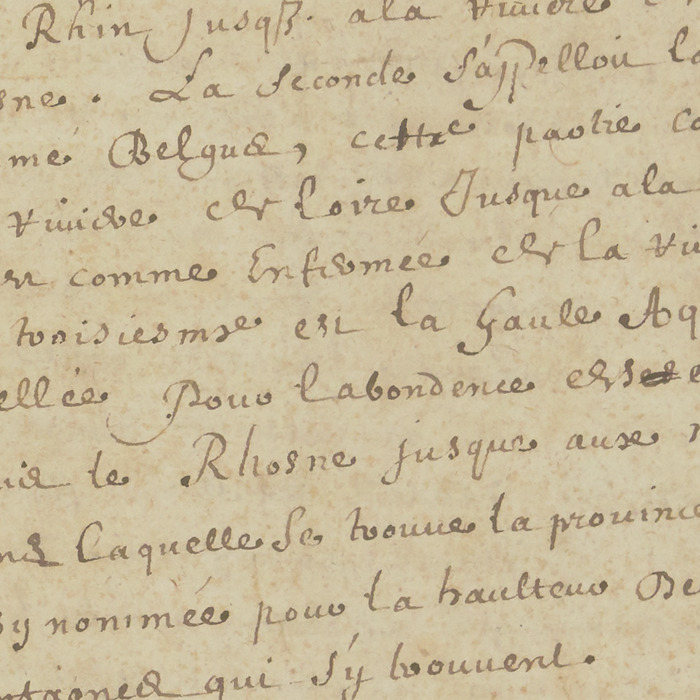 Rhin Jusqs. a la riuiere
sne. La seconde s'appelloit la
mé Belgue, cette partie
riuiere de loire Jusque a la
comme Enfermée de la
troisiesme est la Gaule Aq
ellée Pour labondence des
le Rhosne jusque aux
laquelle se trouue la prouince
sy nommée pour la haulteur De
ntagnes qui s'y trouuent.